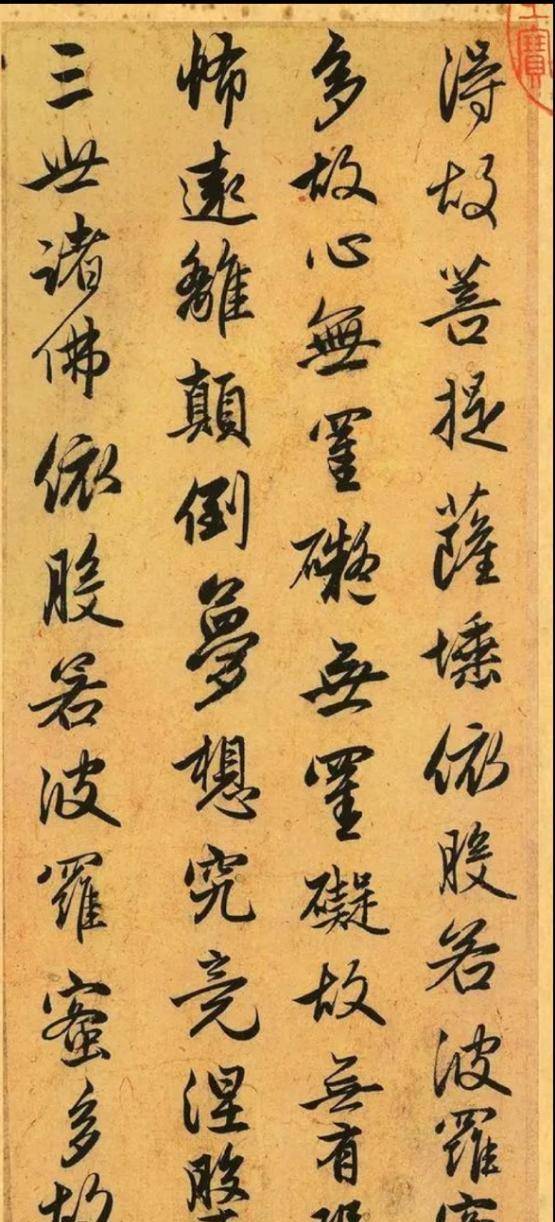 得故菩提薩埵依般若波羅
多故心無罣礙無罣礙故無有
怖遠離顛倒夢想究竟涅般
三世諸佛依般若波羅蜜多故
寶